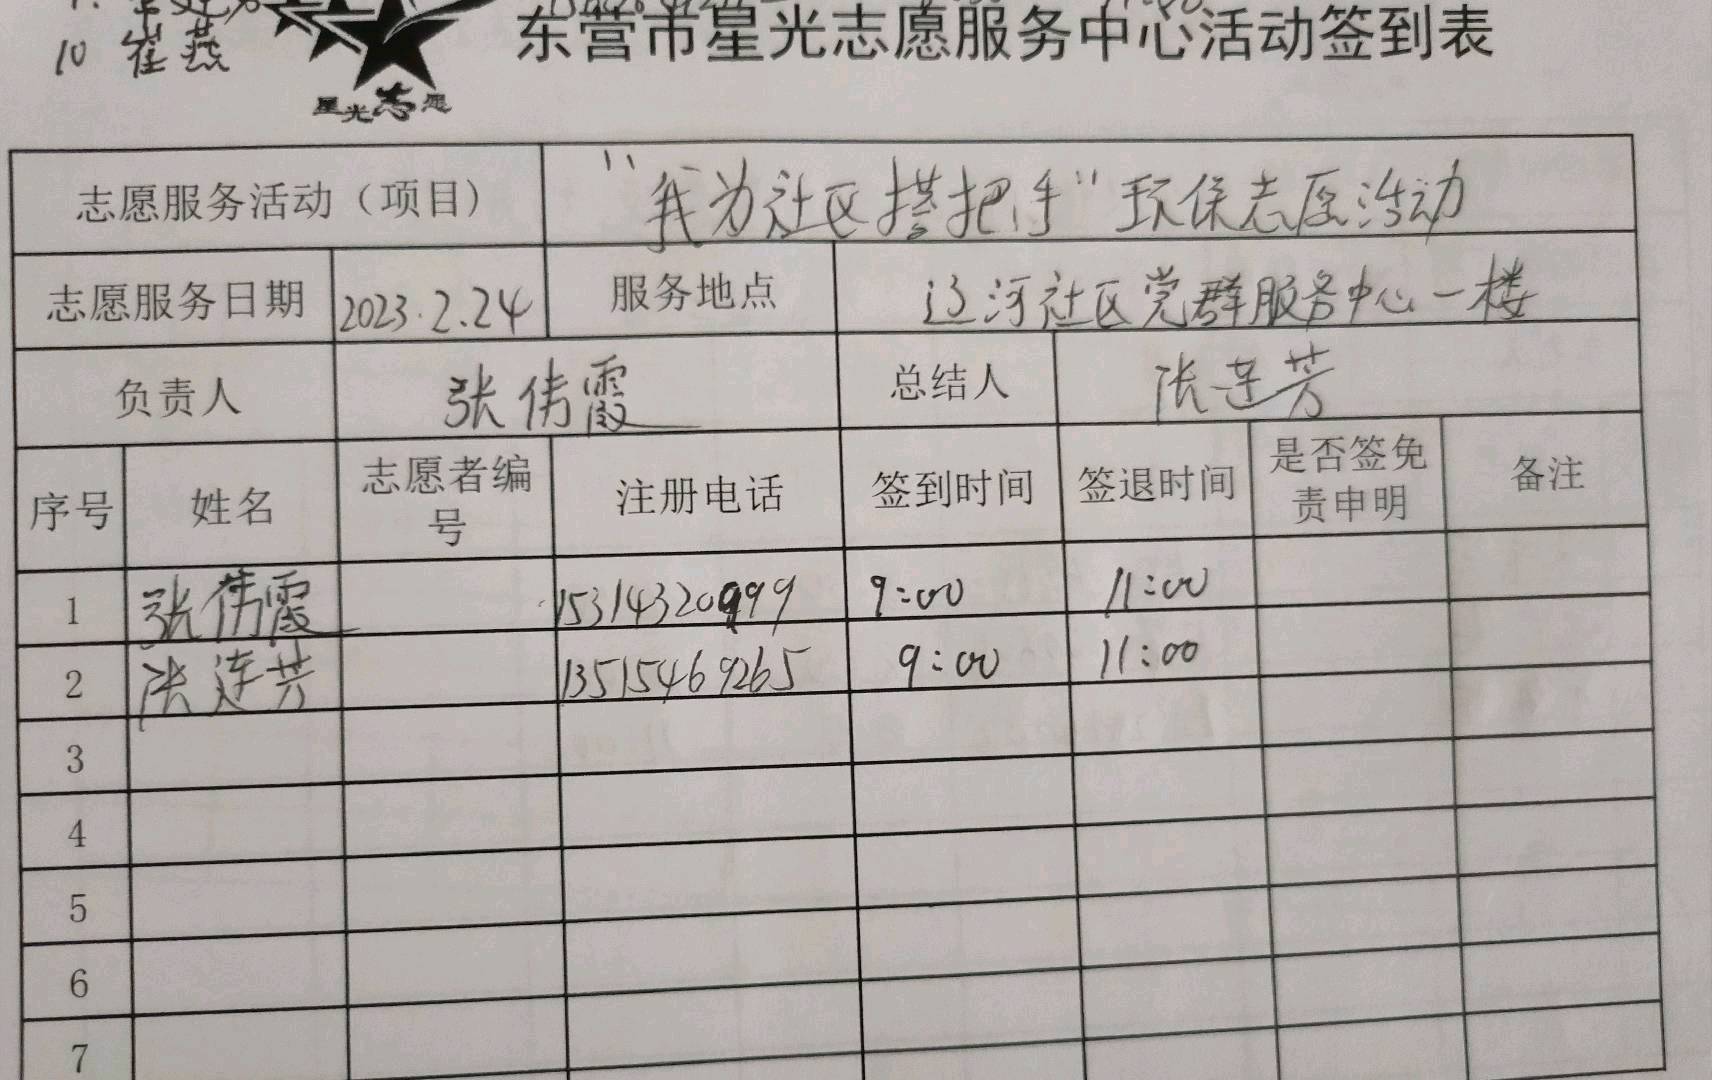 10 崔燕
星光志愿
东营市星光志愿服务中心活动签到表
志愿服务活动（项目） “我为社区搭把手”环保志愿活动
志愿服务日期 2023.2.24 服务地点 辽河社区党群服务中心一楼
负责人 张伟霞 总结人 张连芳
序号 姓名 志愿者编号 注册电话 签到时间 签退时间 是否签免责申明 备注
1 张伟霞 15314320999 9:00 11:00
2 张连芳 13515469265 9:00 11:00
3
4
5
6
7